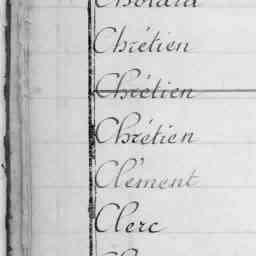 Chrétien
Chrétien
Chrétien
Clément
Clerc